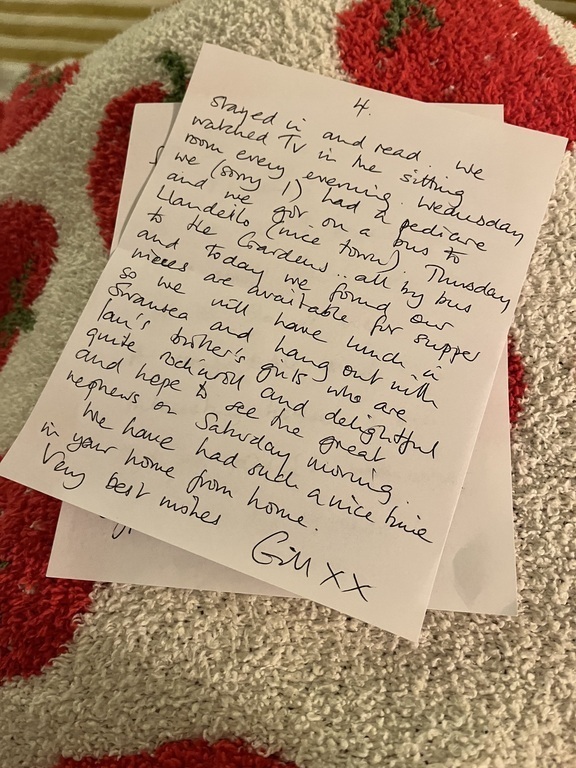 4.
stayed in and read. We
watched TV in the sitting
room every evening. Wednesday
we (sorry I) had a pedicure
and we got on a bus to
Llandeilo (nice town). Thursday
to the Gardens.. all by bus
and today we found our
nieces are available for supper
so we will have lunch in
Swansea and hang out with
Ian's brother's girls who are
quite rock'n'roll and delightful
and hope to see the great
nephews on Saturday morning.
We have had such a nice time
in your home from home.
Very best wishes
Gill XX